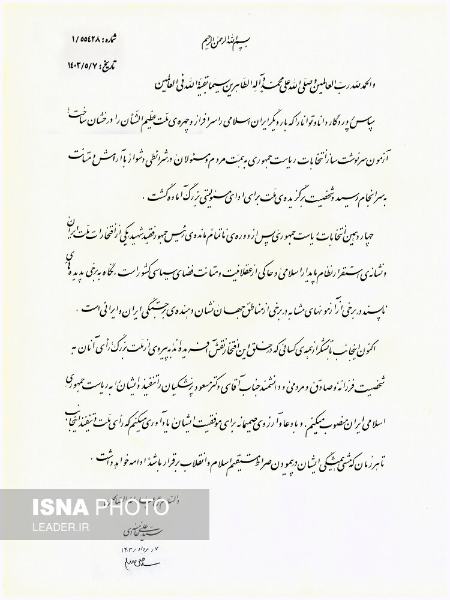 بسم الله الرحمن الرحیم
شماره: ۱/۵۵۴۲۸
تاریخ: ۱۴۰۳/۵/۷
والحمدلله رب العالمین و صلی الله علی محمد و آله الطاهرین سیما بقیة الله فی العالمین
سپاس پروردگار دانا و توانا را که بار دیگر ایران اسلامی را سرافراز و چهره‌ی ملت عظیم الشأن را درخشان ساخت
آزمون سرنوشت ساز انتخابات ریاست جمهوری به همت مردم و مسئولان در شرائطی دشوار با آرامش و متانت
به سرانجام رسید و شخصیت برگزیده‌ی ملت برای ادای مسئولیتی بزرگ آماده گشت.
چهاردهمین انتخابات ریاست جمهوری پس از دوره‌ی ناتمام مانده‌ی رئیس جمهور فقید شهید یکی از افتخارات ملت ایران
و نشانه‌ی استقرار نظام پایدار اسلامی و حاکی از عقلانیت و متانت فضای سیاسی کشور است، نگاه به برخی پدیده‌های
ناپسند در برخی از آزمونهای مشابه در برخی از مناطق جهان نشان دهنده‌ی برجستگی ایران و ایرانی است.
اکنون اینجانب با تشکر از همه‌ی کسانی که در خلق این افتخار نقش آفریده‌اند به پیروی از ملت بزرگ رأی آنان به
شخصیت فرزانه و صادق و مردمی و دانشمند جناب آقای دکتر مسعود پزشکیان را تنفیذ و ایشان را به ریاست جمهوری
اسلامی ایران منصوب میکنم. و با دعا و آرزوی صمیمانه برای موفقیت ایشان یادآوری میکنم که رأی ملت و تنفیذ اینجانب
تا هر زمان که مشی همیشگی ایشان در پیمودن صراط مستقیم اسلام و انقلاب برقرار باشد ادامه خواهد داشت.
سیدعلی خامنه‌ای
۷ مرداد ۱۴۰۳
ISNA PHOTO
LEADER.IR